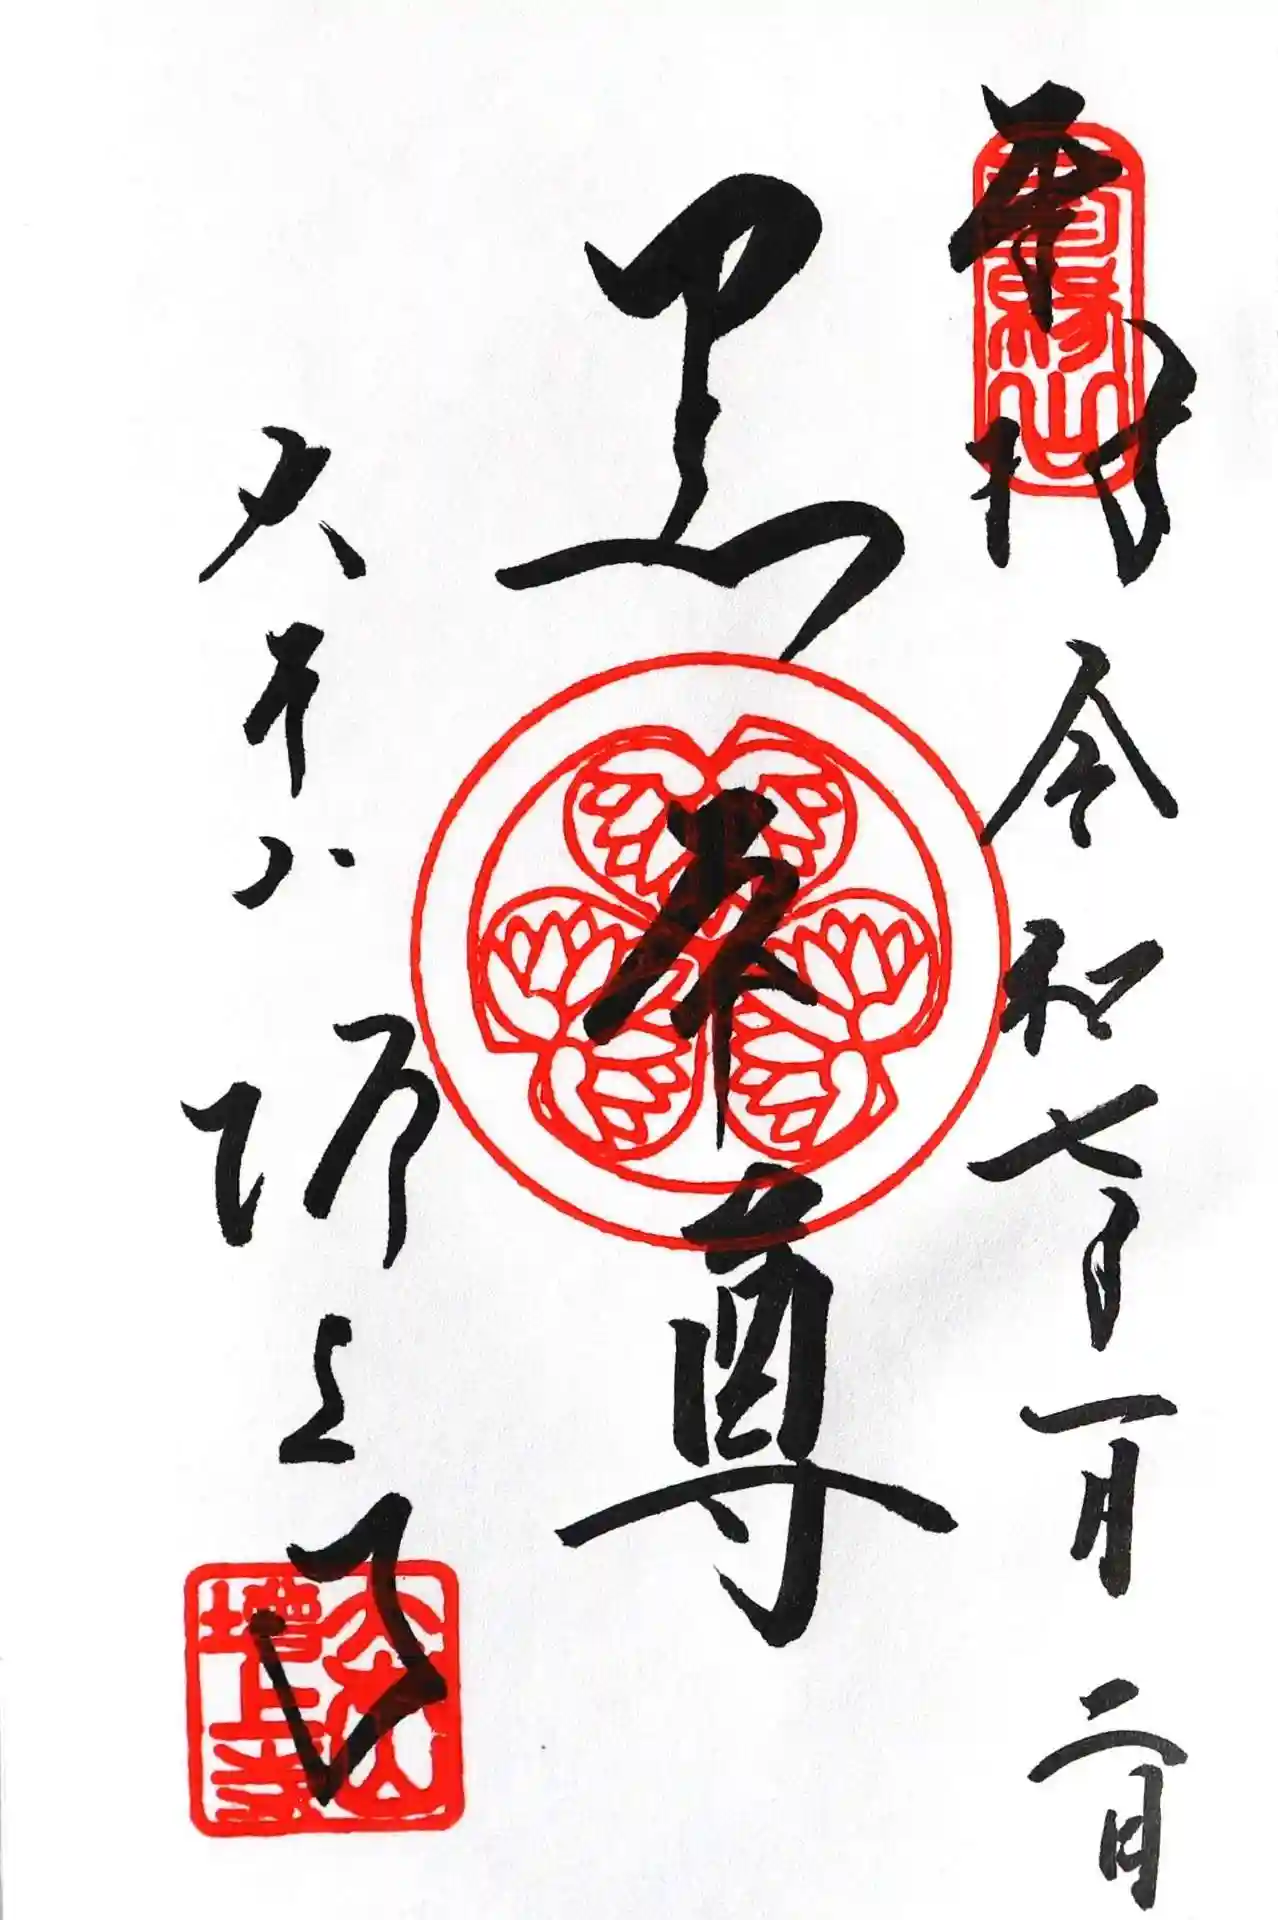 奉拝 令和七年一月二日
黒本尊
大本山増上寺
吉縁山
大本山
増上寺